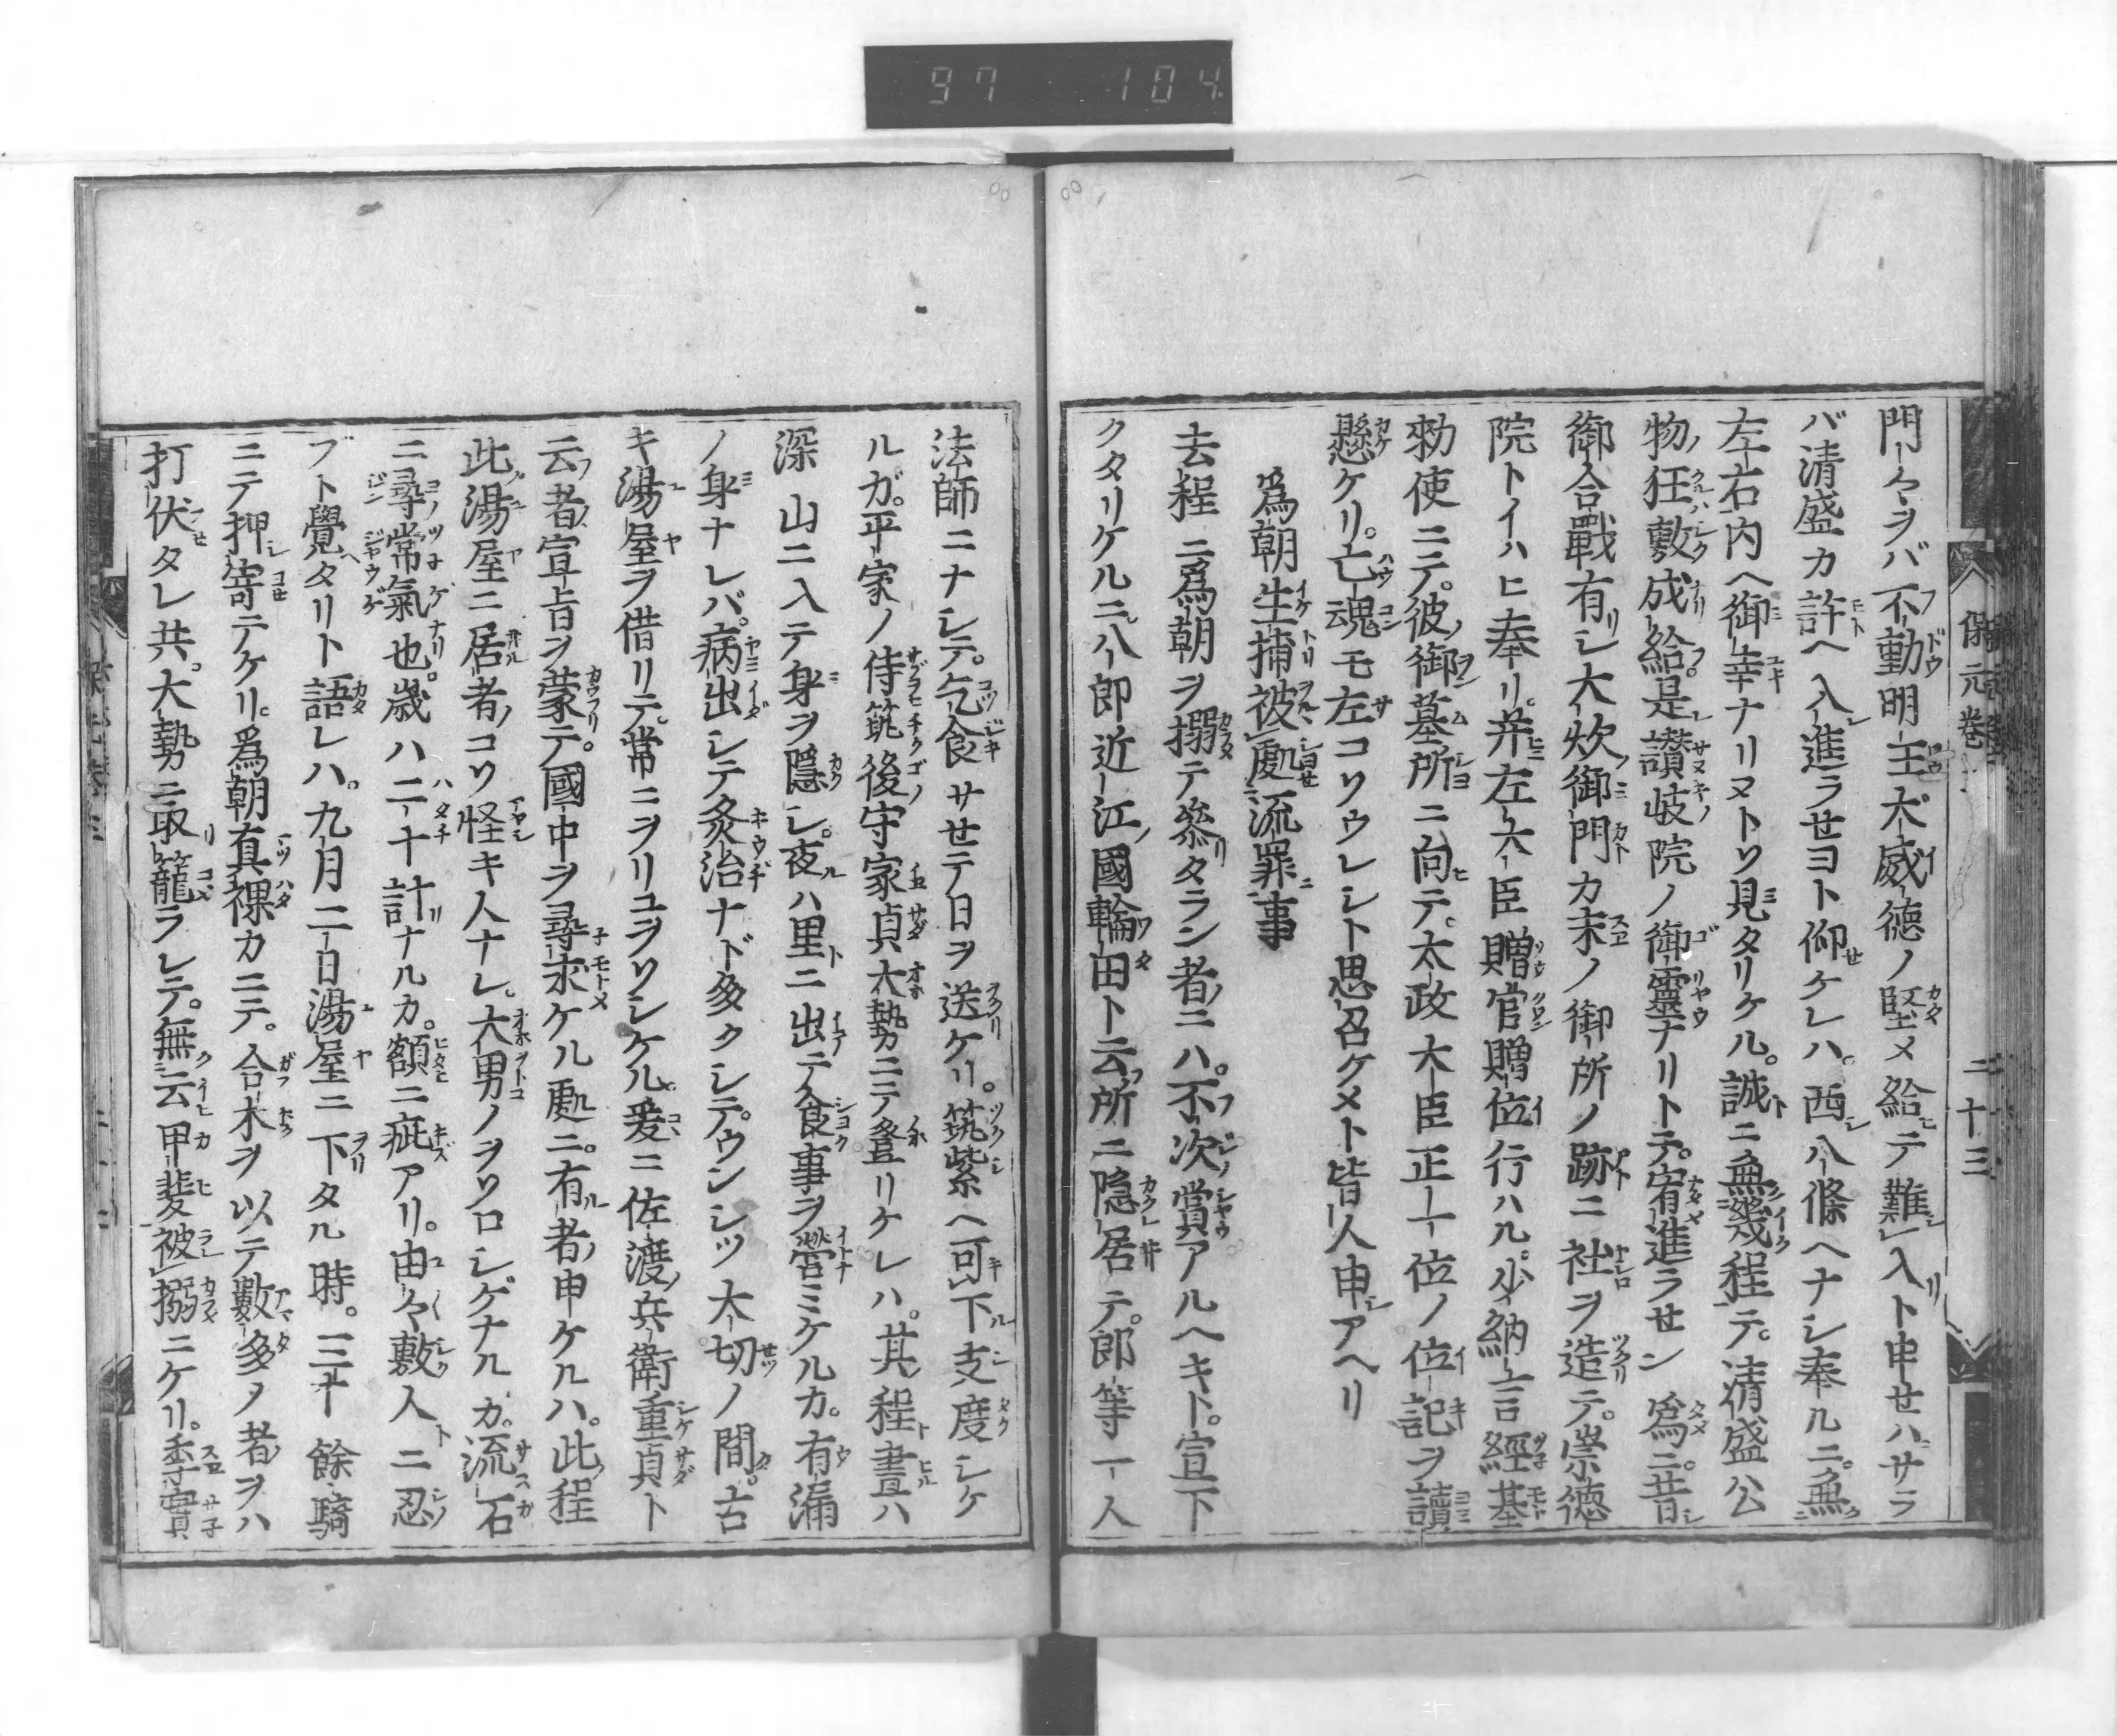 97 104
門々ヲバ不動明王大威徳ノ堅メ給テ難入ト申セハサラ
バ清盛カ許ヘ入進ラセヨト仰ケレハ。西八條ヘナシ奉ルニ。無
左右内ヘ御幸ナリヌトソ見タリケル。誠ニ無幾程テ。清盛公
物狂敷成給。是讃岐院ノ御靈ナリトテ。宥進ラセン爲ニ。昔
御合戰有シ大炊御門カ末ノ御所ノ跡ニ社ヲ造テ。崇徳
院トイハヒ奉リ。并左大臣贈官贈位行ハル。少納言經基
勅使ニテ。彼御墓所ニ向テ。太政大臣正一位ノ位記ヲ讀
懸ケリ。亡魂モ左コソウレシト思召ケメト皆人申アヘリ
爲朝生捕被處流罪事
去程ニ爲朝ヲ搦テ參タラン者ニハ。不次賞アルヘキト。宣下
クタリケルニ。八郎近江國輪田ト云所ニ隠居テ。郎等一人
保元巻三
二十三
法師ニナシテ。乞食サセテ日ヲ送ケリ。筑紫ヘ可下支度シケ
ルガ。平家ノ侍筑後守家貞大勢ニテ登リケレハ。其程晝ハ
深山ニ入テ身ヲ隠シ。夜ハ里ニ出テ食事ヲ營ミケルカ。有漏
ノ身ナレバ。病出シテ灸治ナド多クシテ。ウンシツ大切ノ間。古
キ湯屋ヲ借リテ。常ニヲリユヲソシケル。爰ニ佐渡兵衛重貞ト
云者。宣旨ヲ蒙テ。國中ヲ尋求ケル處ニ。有者申ケルハ。此程
此湯屋ニ居者コソ怪キ人ナレ。大男ノヲソロシゲナルカ。流石
ニ尋常氣也。歳ハ二十計ナルカ。額ニ疵アリ。由々敷人ニ忍
ブト覺タリト語レハ。九月二日湯屋ニ下タル時。三十餘騎
ニテ押寄テケリ。爲朝真裸カニテ。合木ヲ以テ數多ノ者ヲハ
打伏タレ共。大勢ニ取籠ラレテ。無云甲斐被搦ニケリ。季實